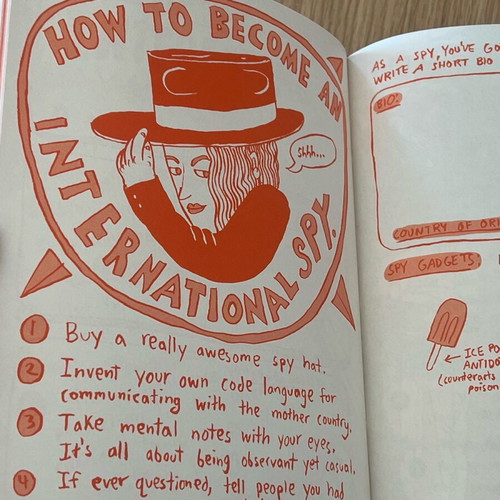 HOW TO BECOME AN
INTERNATIONAL SPY.
Shhh...
1 Buy a really awesome spy hat.
2 Invent your own code language for
communicating with the mother country.
3 Take mental notes with your eyes.
It's all about being observant yet casual.
4 If ever questioned, tell people you had
AS A SPY, YOU'VE GO
WRITE A SHORT BIO
BIO:
COUNTRY OF ORI
SPY GADGETS
ICE PO
ANTIDO
(counteracts
poison